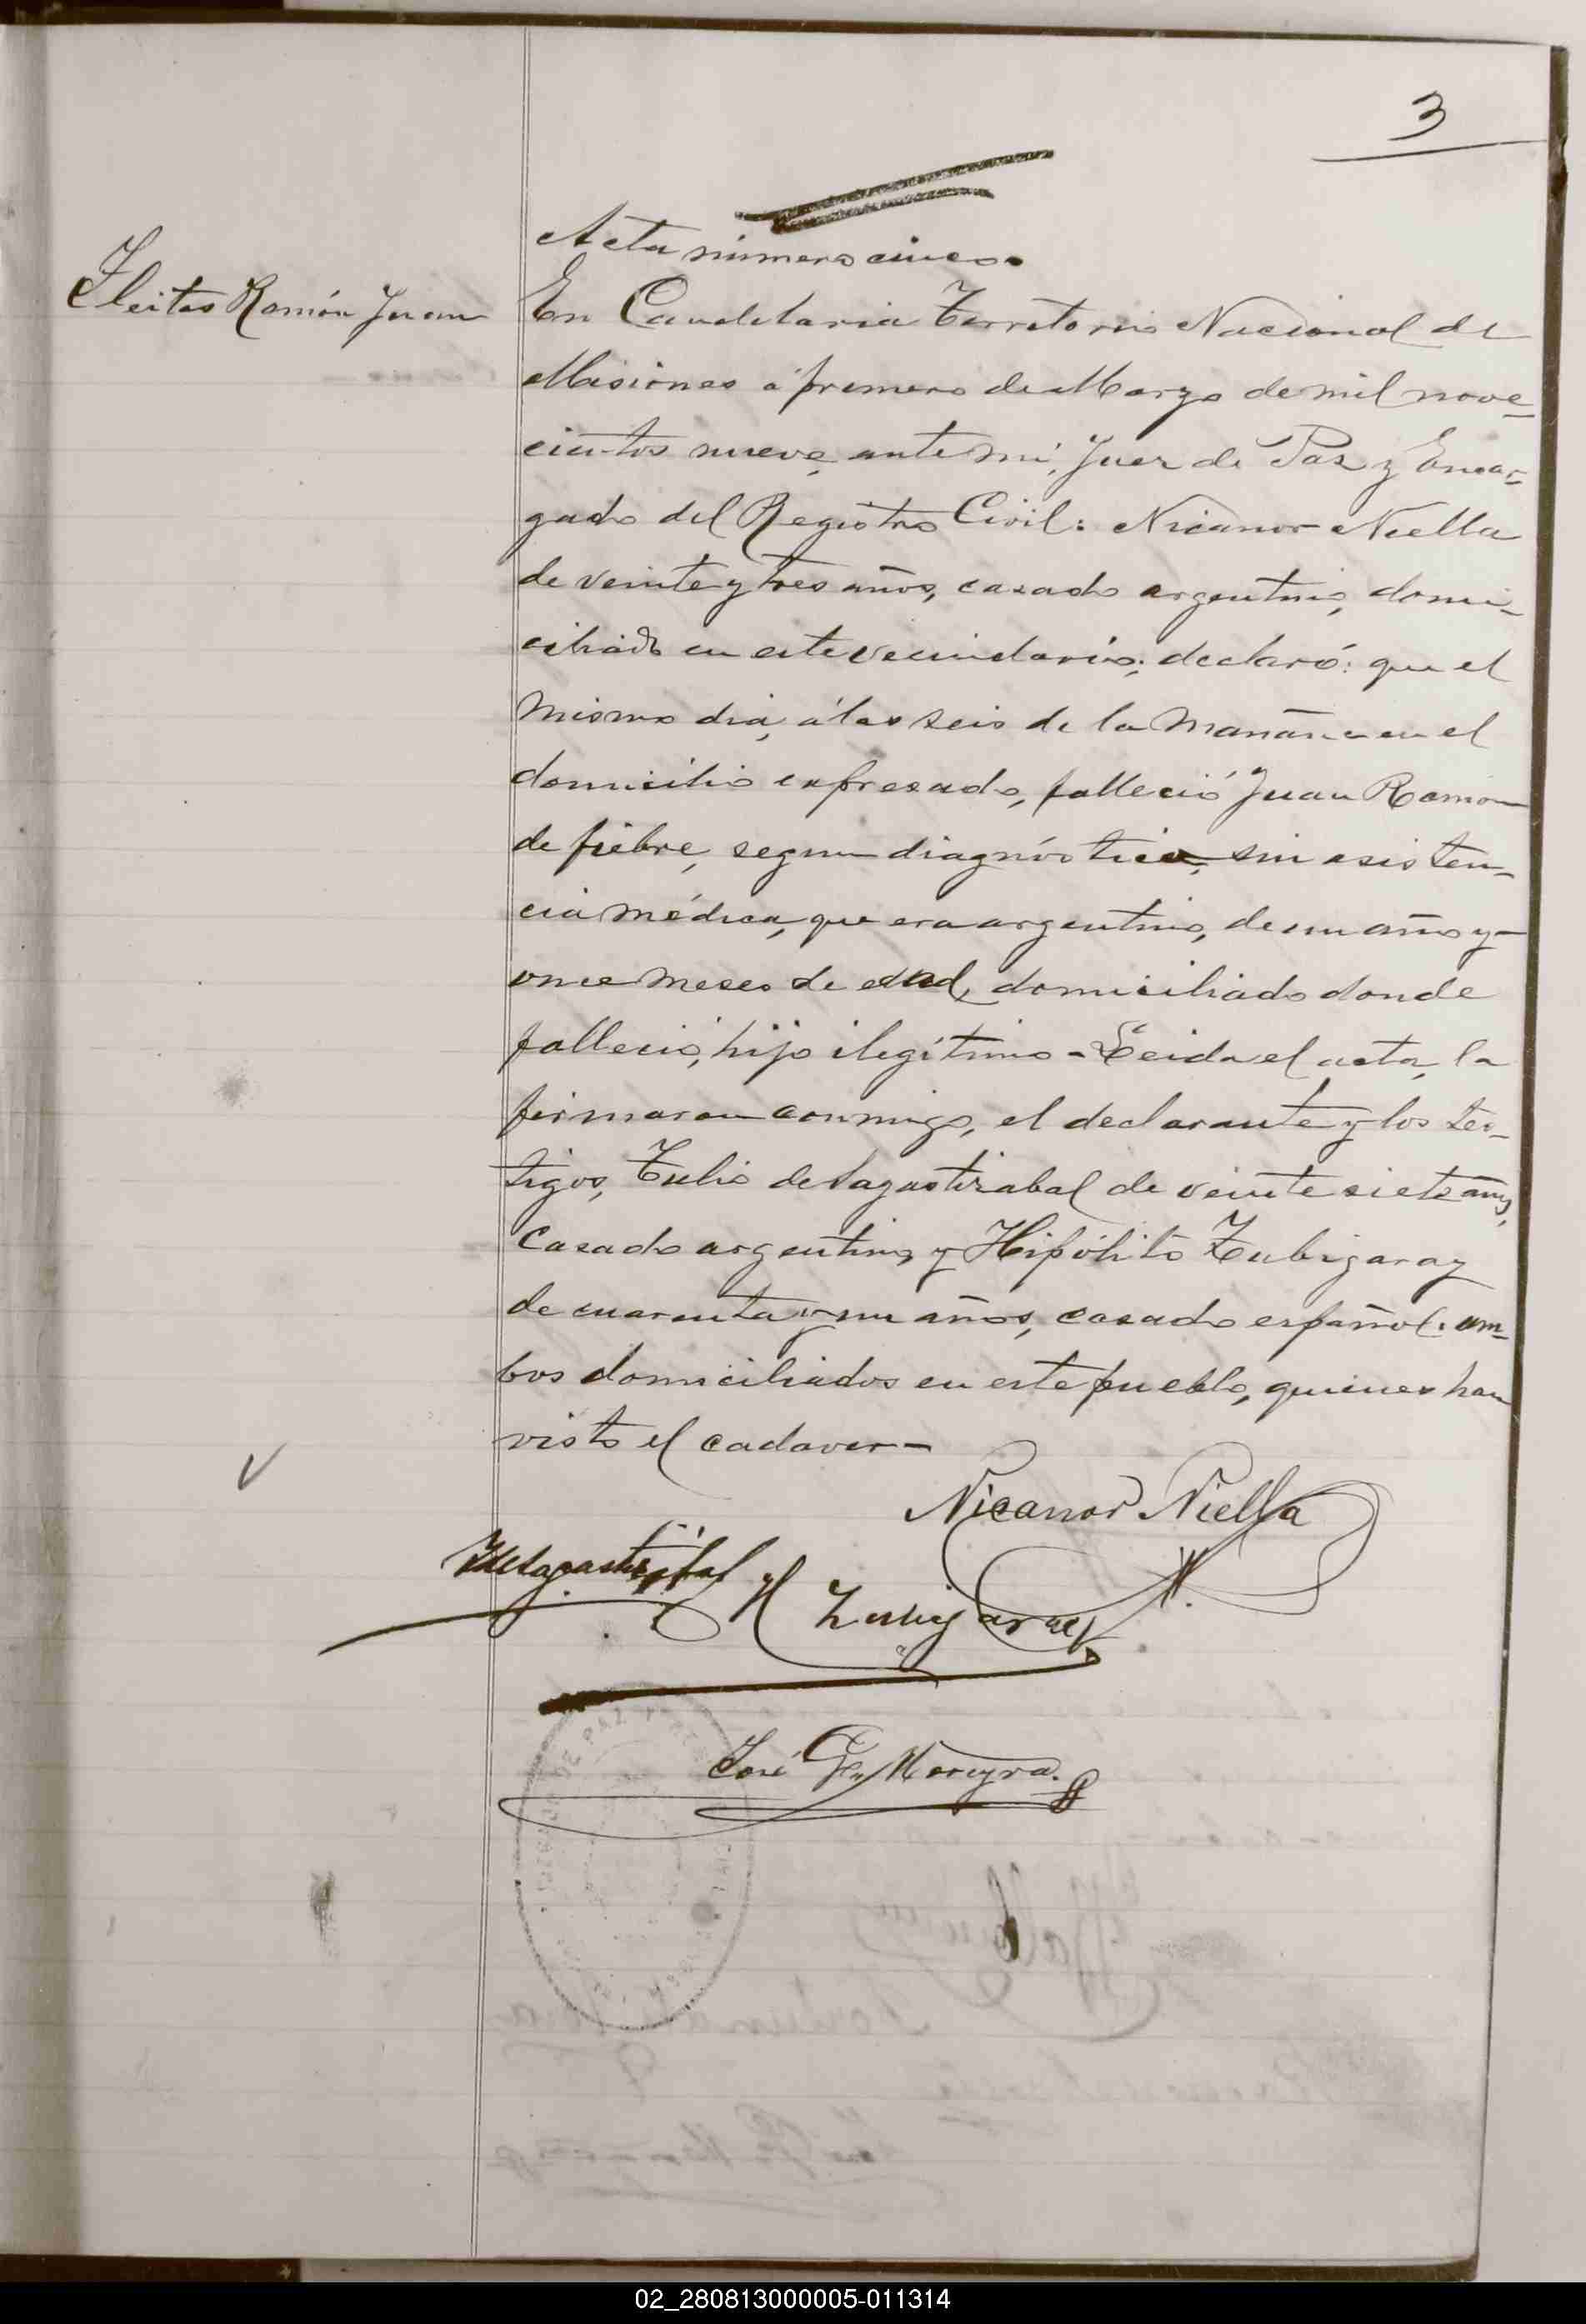 3
Acta número cinco.
Fleitas Ramón Juan
En Candelaria Territorio Nacional de
Misiones á primero de Marzo de mil nove-
cientos nueve, ante mí, Juez de Paz y Encar-
gado del Registro Civil: Nicanor Niella
de veinte y tres años, casado argentino, domi-
ciliado en este vecindario; declaró: que el
mismo dia, á las seis de la mañana en el
domicilio expresado, falleció Juan Ramón
de fiebre, segun diagnóstico, sin asisten-
cia médica, que era argentino, de un año y
once meses de edad, domiciliado donde
falleció, hijo ilegítimo - Leida el acta, la
firmaron conmigo, el declarante y los tes-
tigos, Tulio de Sagastizabal de veinte siete años,
casado argentino, y Hipólito Zubigaray
de cuarenta y un años, casado español: am-
bos domiciliados en este pueblo, quienes han
visto el cadaver -
Nicanor Niella
TdeSagastizabal
H Zubigaray
José Gz Moreyra.
DE PAZ Y
02_280813000005-011314